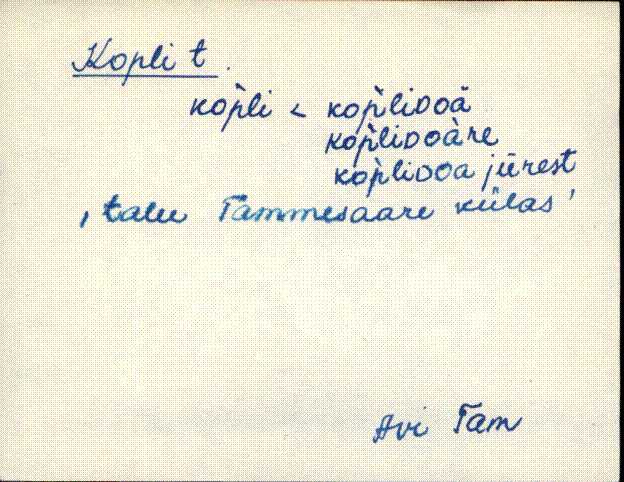 Kopli t.
kop̀li < kop̀liᴅoä
kop̀liᴅoàre
kop̀liᴅoa jürest
, talu Tammesaare külas '
Avi Tam